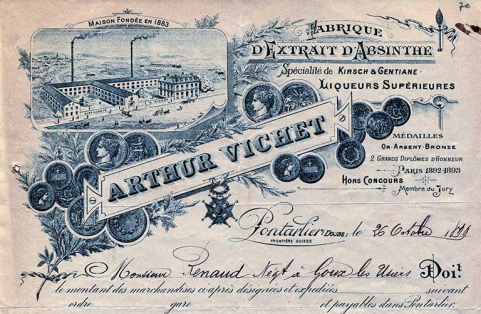 70
MAISON FONDÉE EN 1883
FABRIQUE
D'EXTRAIT D'ABSINTHE
Spécialité de KIRSCH & GENTIANE
LIQUEURS SUPÉRIEURES
ARTHUR VICHET
MÉDAILLES
OR-ARGENT-BRONZE
2 GRANDS DIPLÔMES D'HONNEUR
PARIS 1892-1893
HORS CONCOURS
Membre du Jury
Pontarlier DOUBS, le 26 Octobre
FRONTIÈRE SUISSE
Monsieur Renaud Négt à Goux les Usiers Doit
le montant des marchandises ci-après désignées et expédiées suivant
ordre gare et payables dans Pontarlier.